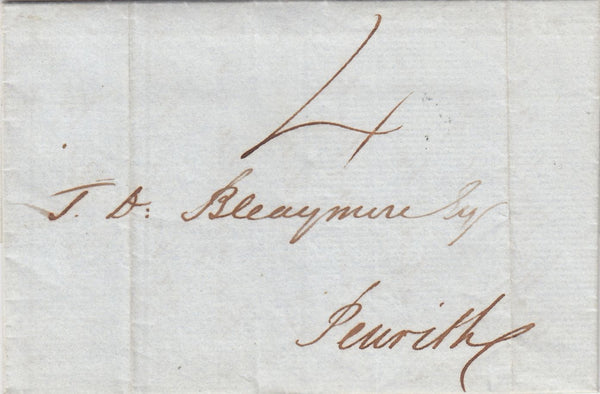 4
J. D: Bleaymire Esq
Penrith